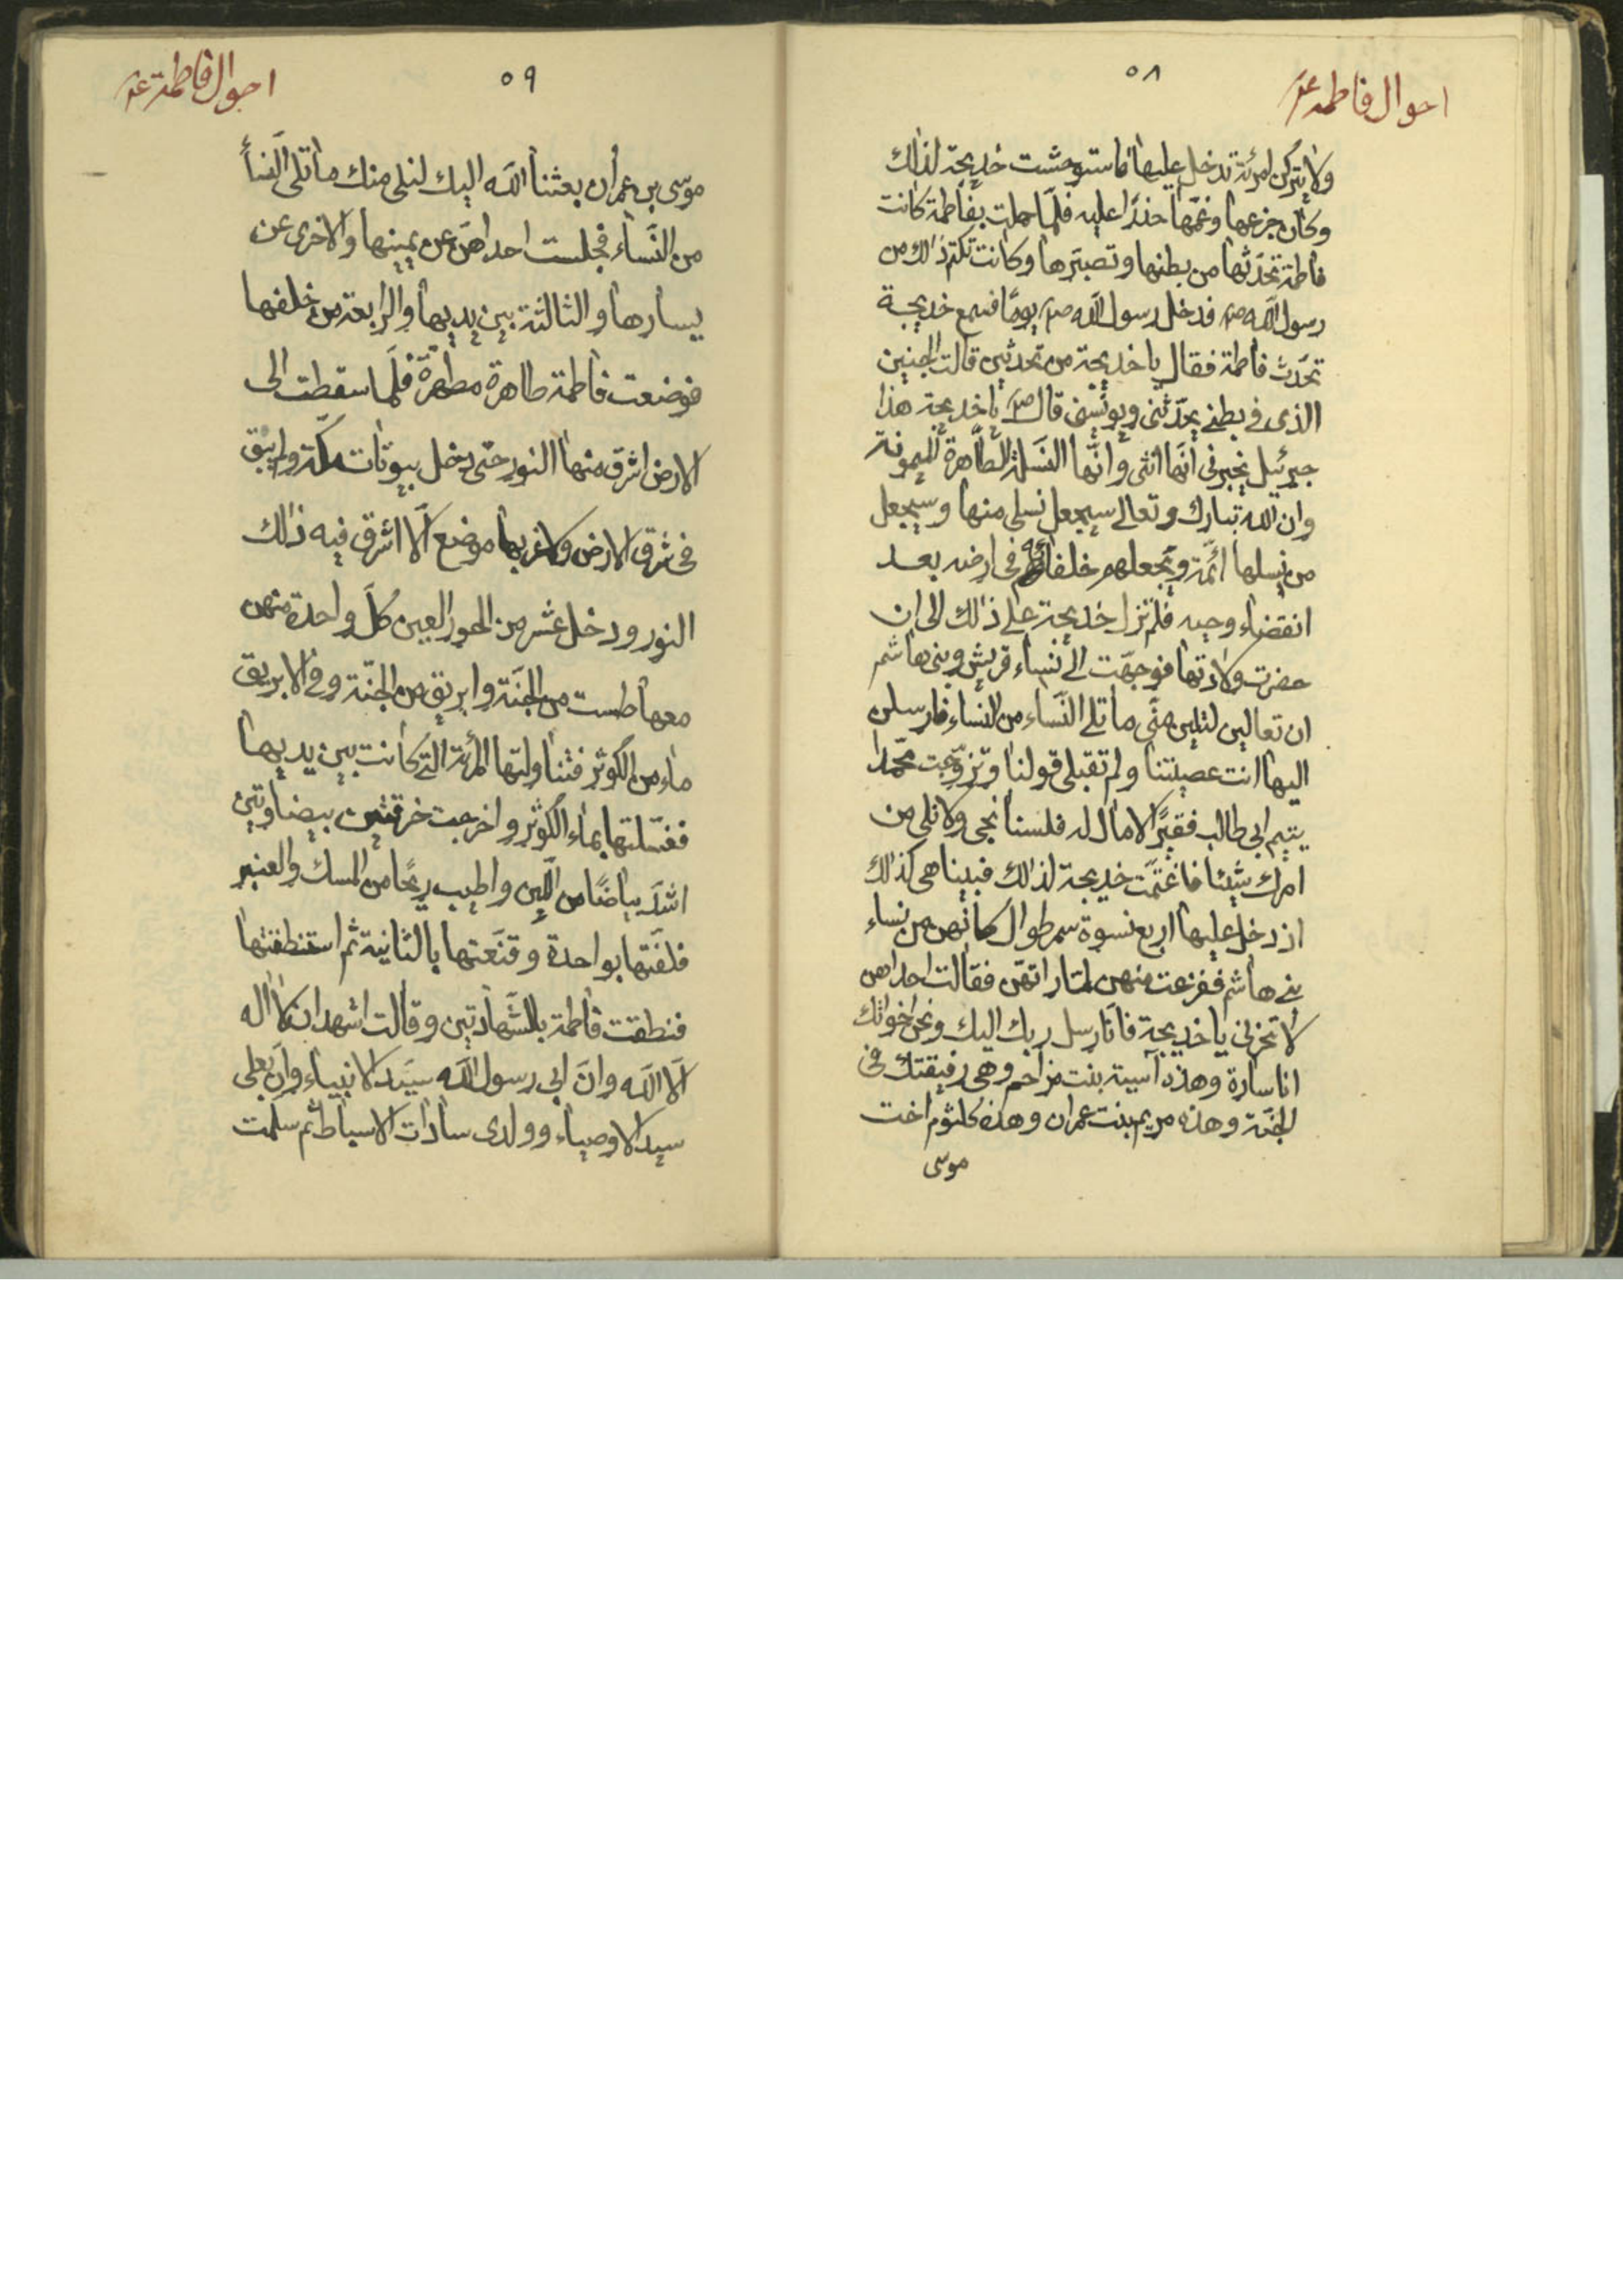 احوال فاطمه ع
٥٨
ولا يتركن امرئة تدخل عليها فاستوحشت خديجة لذلك
وكان جزعها وغمها حذرا عليه فلما حملت بفاطمة كانت
فاطمة تحدثها من بطنها وتصبرها وكانت تكتم ذلك من
رسول الله ص فدخل رسول الله ص يوما فسمع خديجة
تحدث فاطمة فقال يا خديجة من تحدثين قالت الجنين
الذى فى بطنى يحدثنى ويونسنى قال ص يا خديجة هذا
جبرئيل يخبرنى انها انثى وانها النسلة الطاهرة الميمونة
وان الله تبارك وتعالى سيجعل نسلى منها وسيجعل
من نسلها ائمة ويجعلهم خلفائه فى ارضه بعد
انقضاء وحيه فلم تزل خديجة على ذلك الى ان
حضرت ولادتها فوجهت الى نساء قريش وبنى هاشم
ان تعالين لتلين منى ما تلى النساء من النساء فارسلن
اليها انت عصيتنا ولم تقبلى قولنا وتزوجت محمدا
يتيم ابى طالب فقيرا لا مال له فلسنا نجى ولا نلى من
امرك شيئا فاغتمت خديجة لذلك فبينا هى كذلك
اذ دخل عليها اربع نسوة سمر طوال كانهن من نساء
بنى هاشم ففزعت منهن لما راتهن فقالت احداهن
لا تحزنى يا خديجة فانا رسل ربك اليك ونحن اخواتك
انا سارة وهذه آسية بنت مزاحم وهى رفيقتك فى
الجنة وهذه مريم بنت عمران وهذه كلثوم اخت
موسى
احوال فاطمة ع
٥٩
موسى بن عمران بعثنا الله اليك لنلى منك ما تلى النساء
من النساء فجلست احداهن عن يمينها والاخرى عن
يسارها والثالثة بين يديها والرابعة من خلفها
فوضعت فاطمة طاهرة مطهرة فلما سقطت الى
الارض اشرق منها النور حتى دخل بيوتات مكة ولم يبق
فى شرق الارض ولا غربها موضع الا اشرق فيه ذلك
النور ودخل عشر من الحور العين كل واحدة منهن
معها طست من الجنة وابريق من الجنة وفى الابريق
ماء من الكوثر فتناولتها المرئة التى كانت بين يديها
فغسلتها بماء الكوثر واخرجت خرقتين بيضاوتين
اشد بياضا من اللبن واطيب ريحا من المسك والعنبر
فلفتها بواحدة وقنعتها بالثانية ثم استنطقتها
فنطقت فاطمة بالشهادتين وقالت اشهد ان لا اله
الا الله وان ابى رسول الله سيد الانبياء وان بعلى
سيد الاوصياء وولدى سادات الاسباط ثم سلمت